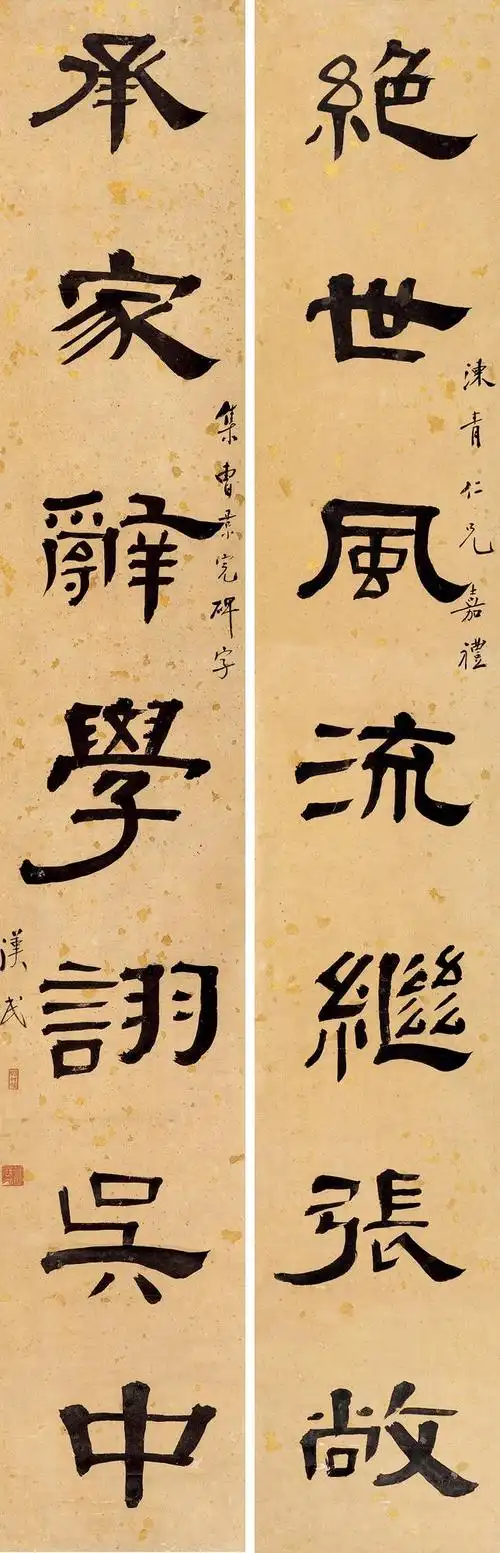 絶世風流繼張敞
青仁兄嘉禮
承家辭學詡吳中
集曹景完碑字
漢民